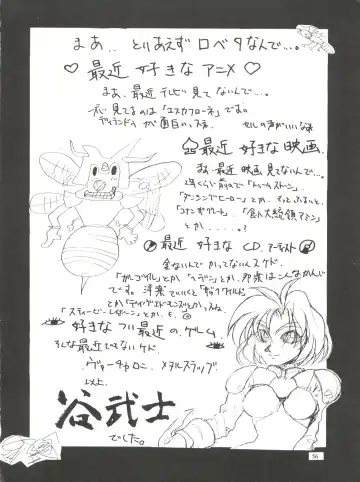 まあ.. とりあえず ロベタなんで…。
♡最近 好きな アニメ♡
まあ、最近テレビ見てないんで…。
応、見てるのは「エスカフローネ」です。
ディランドゥが面白いっスね。
セルの声がいい なあ
最近 好きな 映画
まぁ、最近映画見てないんで…。
2年くらい前ので「トゥームストーン」
「ダンシングヒーロー」とか、もっと古いと
「コナン・ザ・グレート」「食人大統領アミン」
とか . . . . . ?
最近 好きな CD. アーティスト
金ないんで かってないんスケド、
「ガルゴイル」とか「エデン」とか 邦楽はこんなかんじ
です。洋楽でいくと
とかデイヴ
「スティービー
とか、も。
好きなつーい最近のゲーム。
そんな最近でもないケド
ヴァーチャロン. メタルスラッグ.
以上.
谷武士
でした。
56